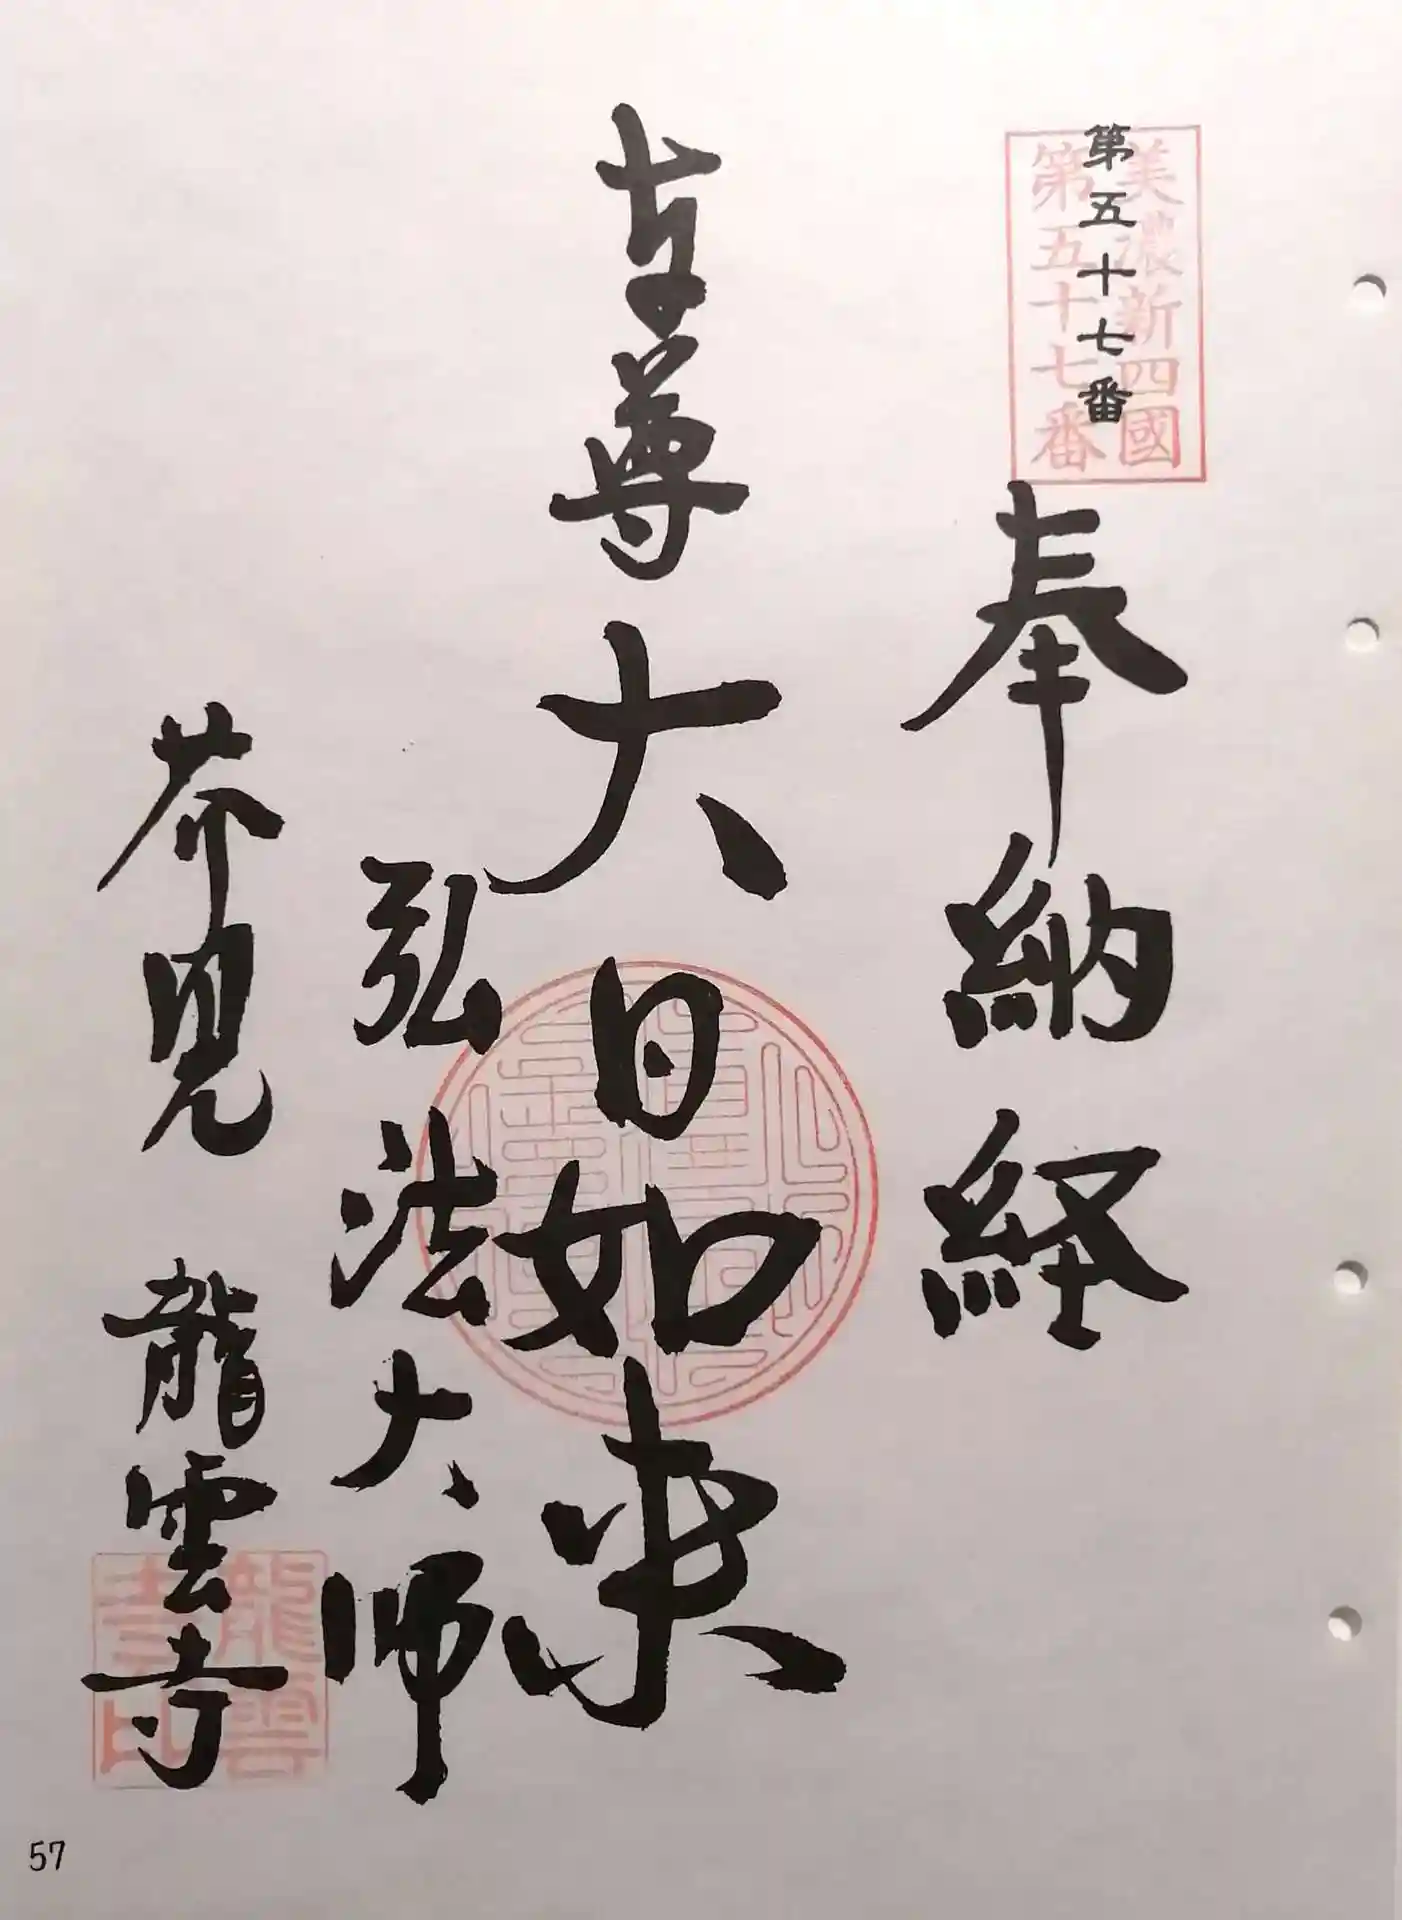 第五十七番
美濃新四國
第五十七番
奉納経
本尊大日如来
弘法大師
芥見 龍雲寺
龍雲
寺印
57